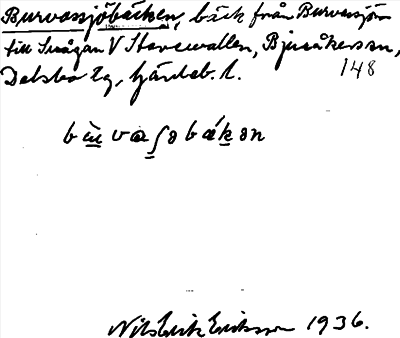 Burvassjöbäcken, bäck från Burvassjön
till Svågan V Storevallen, Bjuråkers sn,
Delsbo tg, Gävleb. l.
148
bùvaʃobákən
Nils Erik Eriksson 1936.